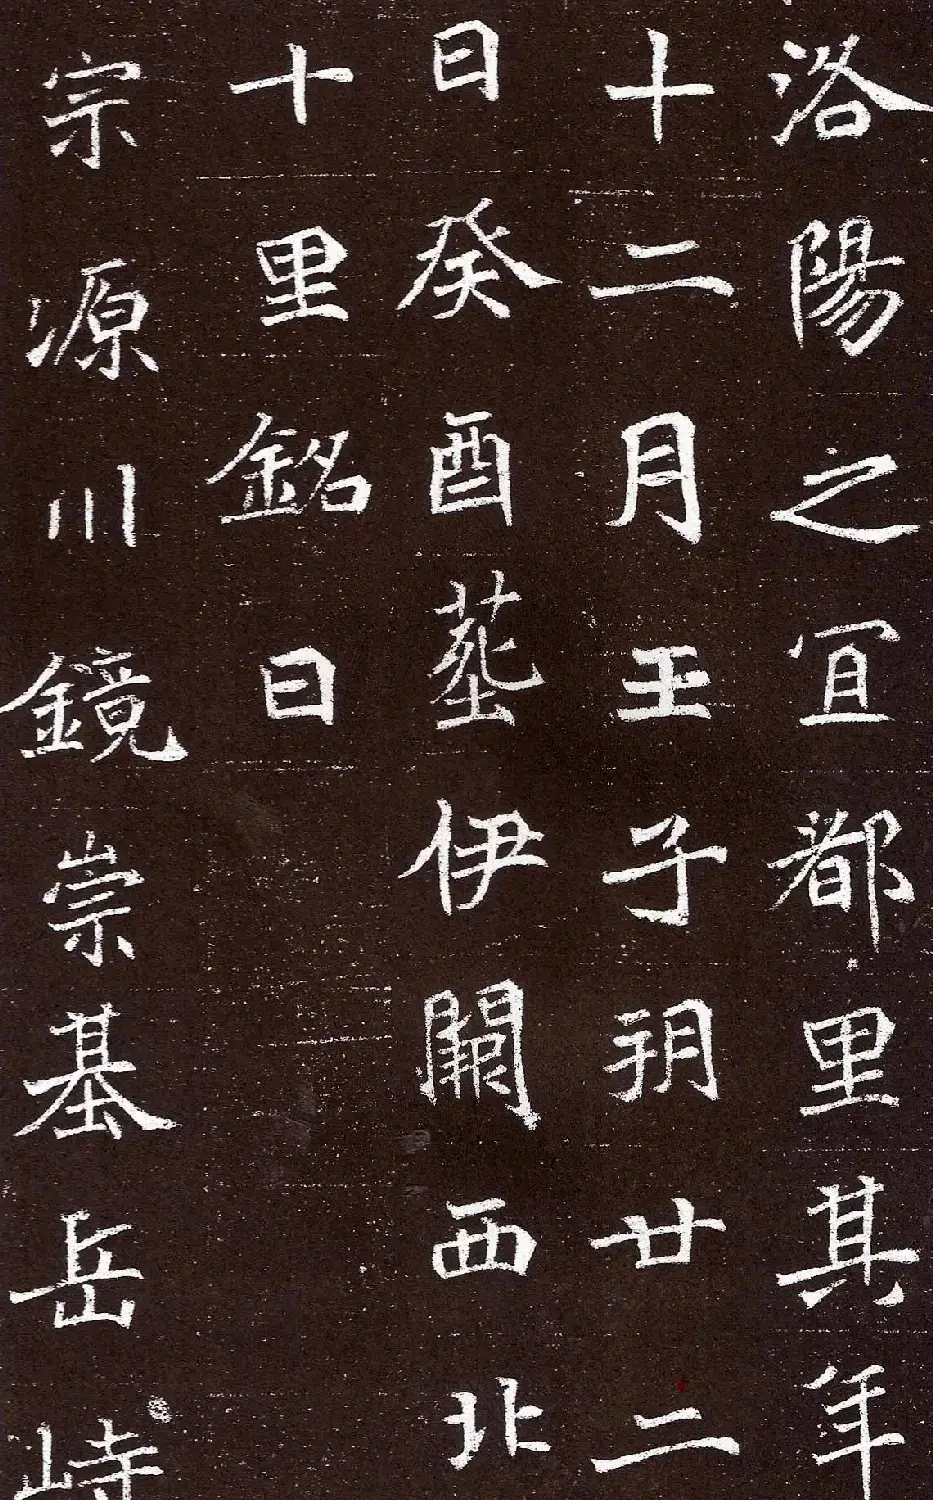 洛陽之宜都里其年
十二月壬子朔廿二
日癸酉葬伊闕西北
十里銘曰
宗源川鏡崇基岳峙